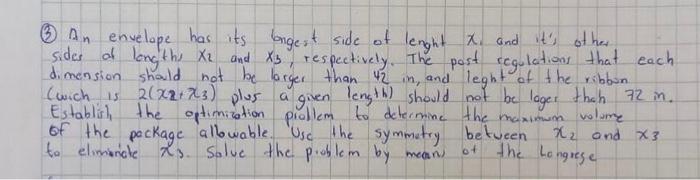 ③ An envelope has its longest side of lenght x₁ and it's other
sides of lengths x2 and x3, respectively. The post regulations that each
dimension should not be larger than 42 in, and leght of the ribbon
(wich is 2(x2+x3) plus a given length) should not be lager than 72 in.
Establish the optimization problem to determine the maximum volume
of the package allowable. Use the symmetry between x2 and x3
to eliminate x3. Solve the problem by means of the Longrese